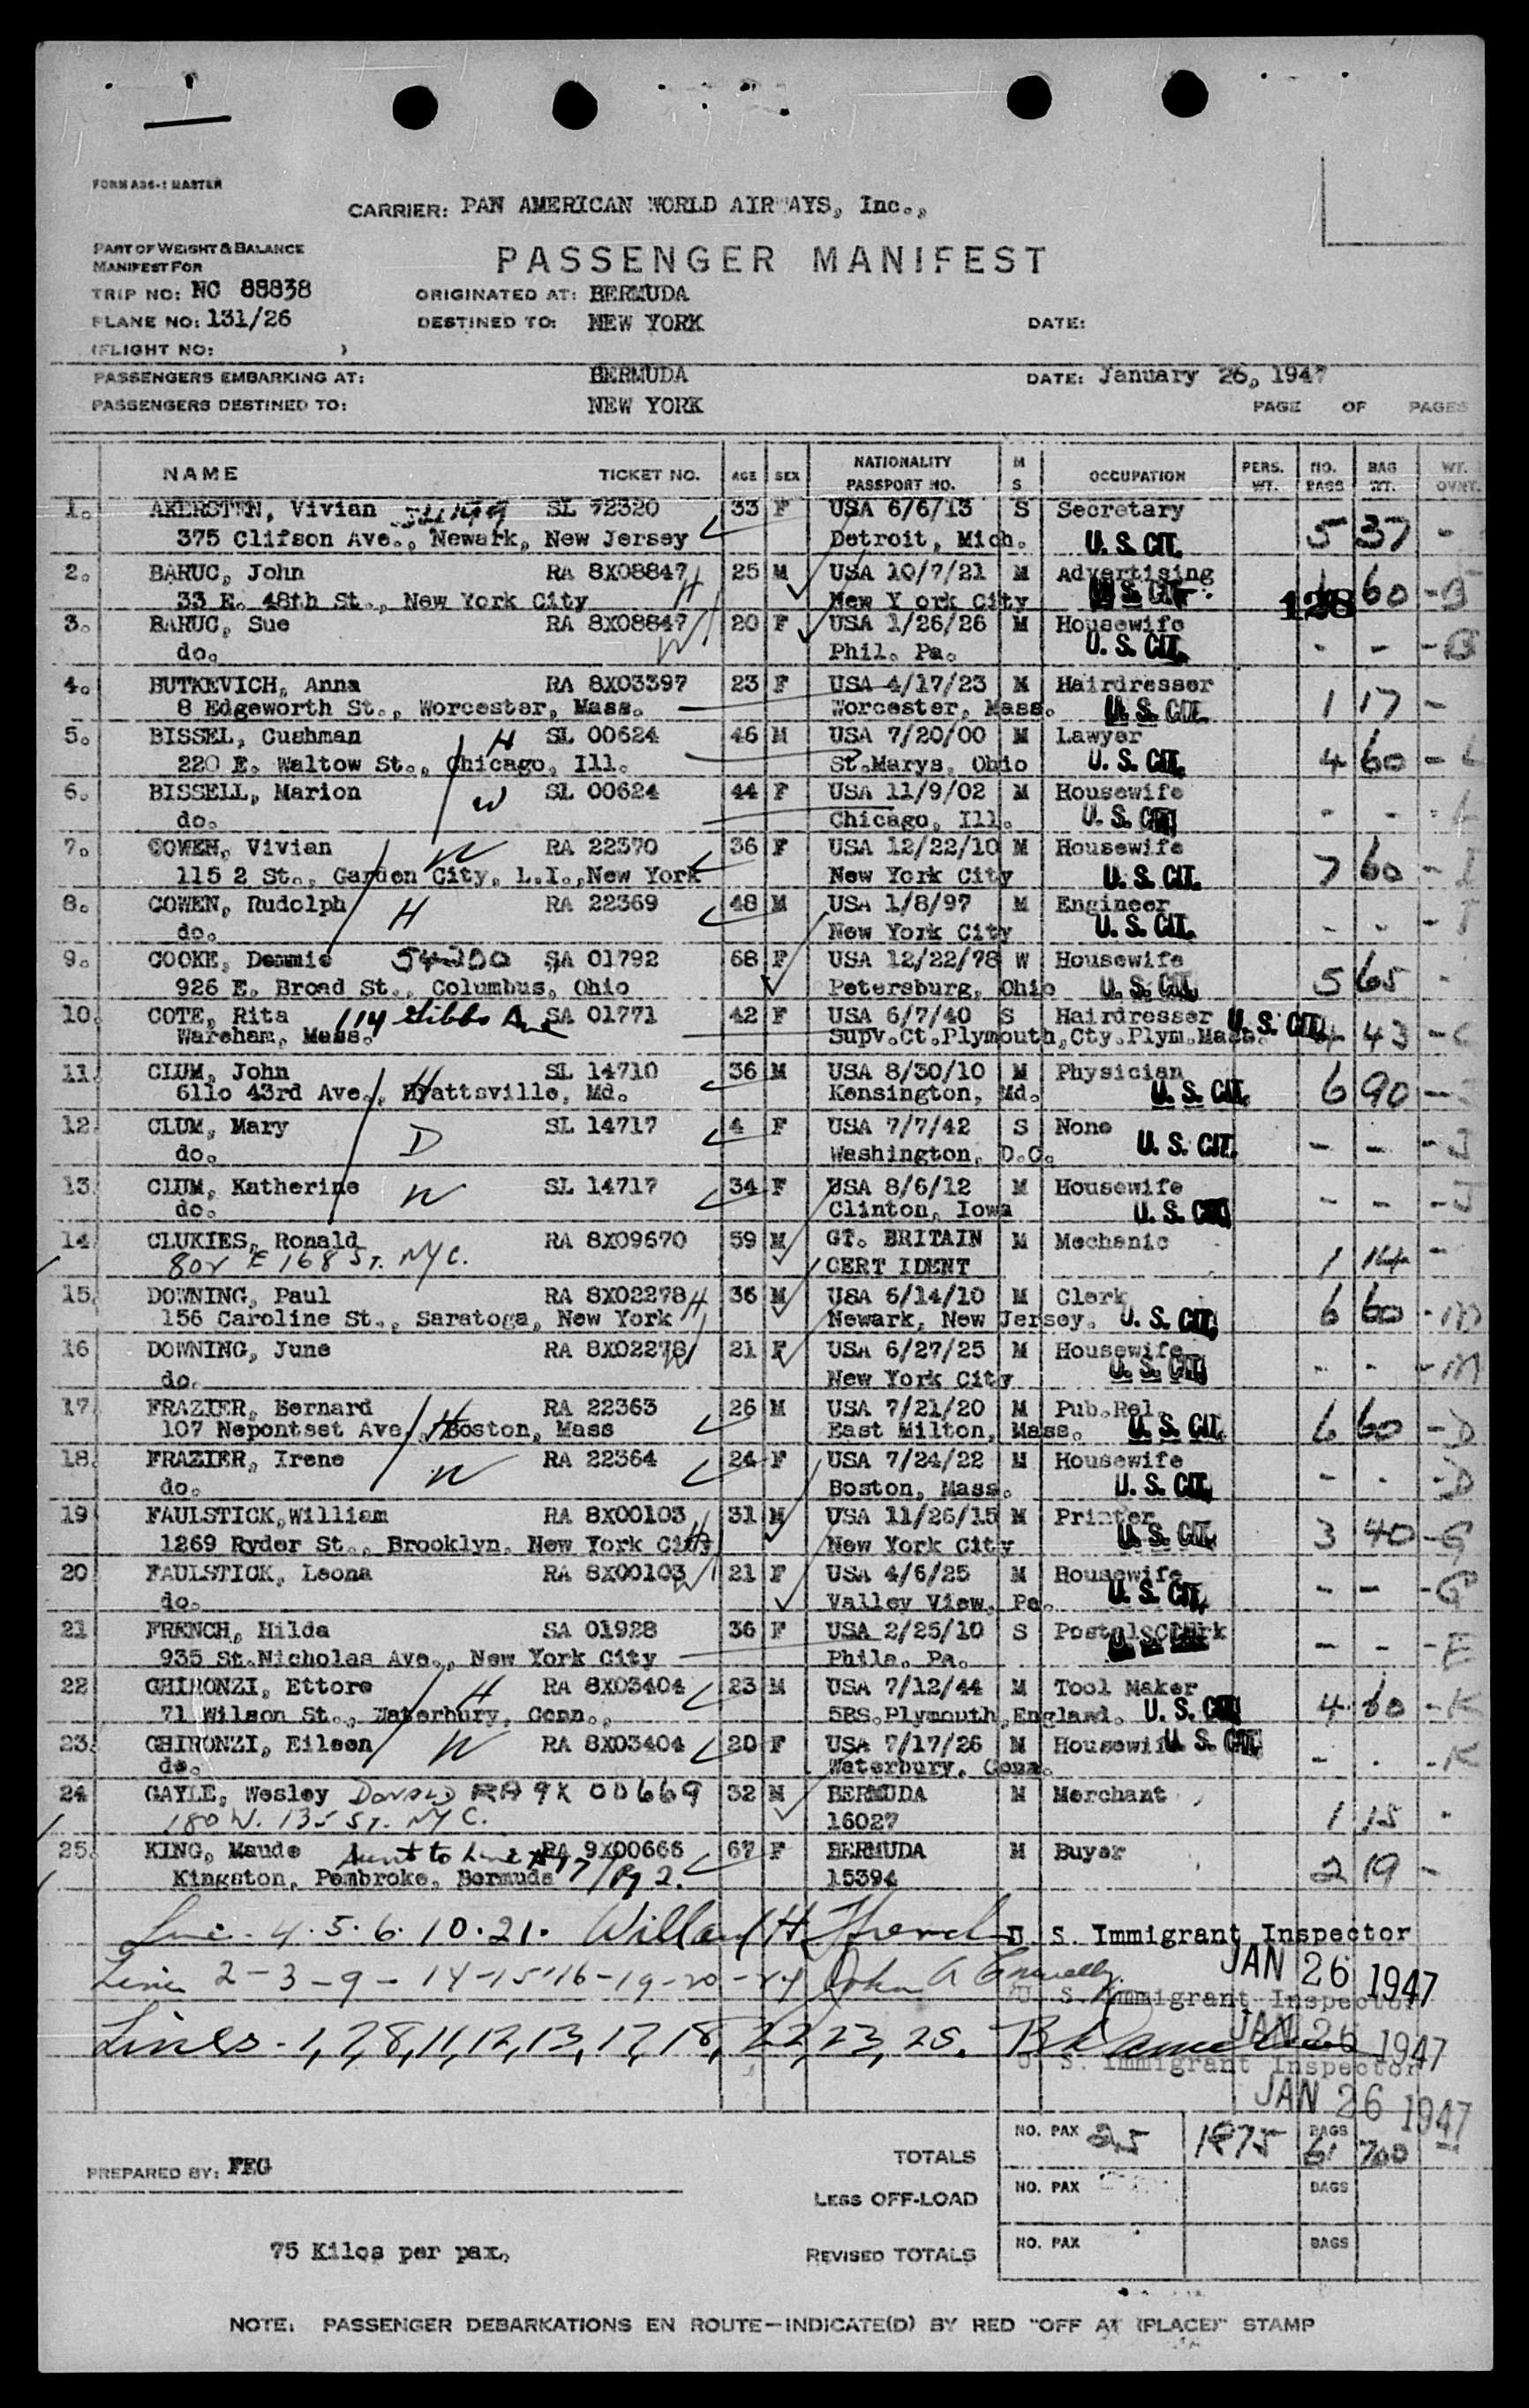 FORM A36-1 MASTER
CARRIER: PAN AMERICAN WORLD AIRWAYS, Inc.,
PART OF WEIGHT & BALANCE
MANIFEST FOR
PASSENGER MANIFEST
TRIP NO: NC 88838 ORIGINATED AT: BERMUDA
PLANE NO: 131/26 DESTINED TO: NEW YORK DATE:
(FLIGHT NO: )
PASSENGERS EMBARKING AT: BERMUDA DATE: January 26, 1947
PASSENGERS DESTINED TO: NEW YORK PAGE OF PAGES
NAME TICKET NO. AGE SEX NATIONALITY PASSPORT NO. M S OCCUPATION PERS. WT. NO. BAGS BAG WT. WT. OVNT.
1. AKERSTEN, Vivian SL 72320 33 F USA 6/6/13 S Secretary
375 Clifson Ave., Newark, New Jersey Detroit, Mich. U. S. CIT. 5 37 -
2. BARUC, John RA 8X08847 H 25 M USA 10/7/21 M Advertising
33 E. 48th St., New York City New Y ork City U. S. CIT. 128 60 -B
3. BARUC, Sue RA 8X08847 W 20 F USA 1/26/26 M Housewife
do. Phil. Pa. U. S. CIT. - - -B
4. BUTKEVICH, Anna RA 8X03397 23 F USA 4/17/23 M Hairdresser
8 Edgeworth St., Worcester, Mass. Worcester, Mass. U. S. CIT. 1 17 -
5. BISSEL, Cushman H SL 00624 46 M USA 7/20/00 M Lawyer
220 E. Waltow St., Chicago, Ill. St.Marys, Ohio U. S. CIT. 4 60 - L
6. BISSELL, Marion W SL 00624 44 F USA 11/9/02 M Housewife
do. Chicago, Ill. U. S. CIT. - - - L
7. COWEN, Vivian W RA 22370 36 F USA 12/22/10 M Housewife
115 2 St., Garden City, L.I.,New York New York City U. S. CIT. 7 60 - I
8. COWEN, Rudolph H RA 22369 48 M USA 1/8/97 M Engineer
do. New York City U. S. CIT. - - - I
9. COOKE, Demmie 54200 SA 01792 68 F USA 12/22/78 W Housewife
926 E. Broad St., Columbus, Ohio Petersburg, Ohio U. S. CIT. 5 65 -
10. COTE, Rita 114 Gibbs Ave SA 01771 42 F USA 6/7/40 S Hairdresser U. S. CIT.
Wareham, Mass. Supv.Ct.Plymouth,Cty.Plym.Mass. 4 43 - C
11. CLUM, John H SL 14710 36 M USA 8/30/10 M Physician
6110 43rd Ave., Hyattsville, Md. Kensington, Md. U. S. CIT. 6 90 - J
12. CLUM, Mary D SL 14717 4 F USA 7/7/42 S None
do. Washington, D.C. U. S. CIT. - - - J
13. CLUM, Katherine W SL 14717 34 F USA 8/6/12 M Housewife
do. Clinton, Iowa U. S. CIT. - - - J
14. CLUKIES, Ronald RA 8X09670 59 M GT. BRITAIN M Mechanic
802 E 168 ST. NYC. CERT IDENT 1 14 -
15. DOWNING, Paul RA 8X02278 H 36 M USA 6/14/10 M Clerk
156 Caroline St., Saratoga, New York Newark, New Jersey. U. S. CIT. 6 60 - M
16 DOWNING, June RA 8X02278 W 21 F USA 6/27/25 M Housewife
do. New York City U. S. CIT. - - - M
17. FRAZIER, Bernard H RA 22363 26 M USA 7/21/20 M Pub.Rel.
107 Nepontset Ave., Boston, Mass East Milton, Mass. U. S. CIT. 6 60 - D
18. FRAZIER, Irene W RA 22364 24 F USA 7/24/22 M Housewife
do. Boston, Mass. U. S. CIT. - - - D
19 FAULSTICK,William RA 8X00103 H 31 M USA 11/26/15 M Printer
1269 Ryder St., Brooklyn, New York City New York City U. S. CIT. 3 40 - G
20 FAULSTICK, Leona RA 8X00103 W 21 F USA 4/6/25 M Housewife
do. Valley View, Pa. U. S. CIT. - - - G
21 FRENCH, Hilda SA 01928 36 F USA 2/25/10 S Postal Clerk
935 St.Nicholas Ave., New York City Phila. Pa. U. S. CIT. - - - E
22 GHIRONZI, Ettore H RA 8X03404 23 M USA 7/12/44 M Tool Maker
71 Wilson St., Waterbury, Conn., 5BS.Plymouth,England. U. S. CIT. 4 60 - K
23. GHIRONZI, Eileen W RA 8X03404 20 F USA 7/17/26 M Housewife U. S. CIT.
do. Waterbury, Conn. - - - K
24 GAYLE, Wesley Donald RA 9X 00669 32 M BERMUDA M Merchant
180 W. 135 ST. NYC. 16027 1 15 -
25. KING, Maude Aunt to Line #17/Pg 2. RA 9X00666 67 F BERMUDA M Buyer
Kingston, Pembroke, Bermuda 15394 2 19 -
Line - 4. 5. 6. 10. 21. Willard H. French U. S. Immigrant Inspector
JAN 26 1947
Line 2 - 3 - 9 - 14 - 15 - 16 - 19 - 20 - 24 John A Connelly U. S. Immigrant Inspector
JAN 26 1947
Lines - 1, 7, 8, 11, 12, 13, 17, 18, 22, 23, 25. U. S. Immigrant Inspector
JAN 26 1947
TOTALS NO. PAX 25 1875 BAGS 61 700 -
PREPARED BY: FEG
LESS OFF-LOAD NO. PAX BAGS
75 Kilos per pax. REVISED TOTALS NO. PAX BAGS
NOTE: PASSENGER DEBARKATIONS EN ROUTE—INDICATE(D) BY RED "OFF AT (PLACE)" STAMP